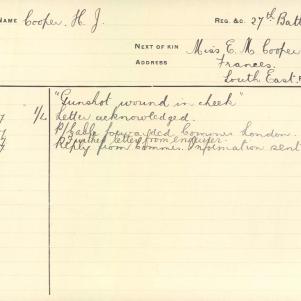 NAME Cooper, H J. REG. &c. 27th Batt
NEXT OF KIN Miss E. M. Cooper
ADDRESS Frances.
South East.
"Gunshot wound in cheek"
1/L Letter acknowledged.
P/Cable forwarded Commes London.
Further letter from enquirer.
Reply from Commes. Information sent